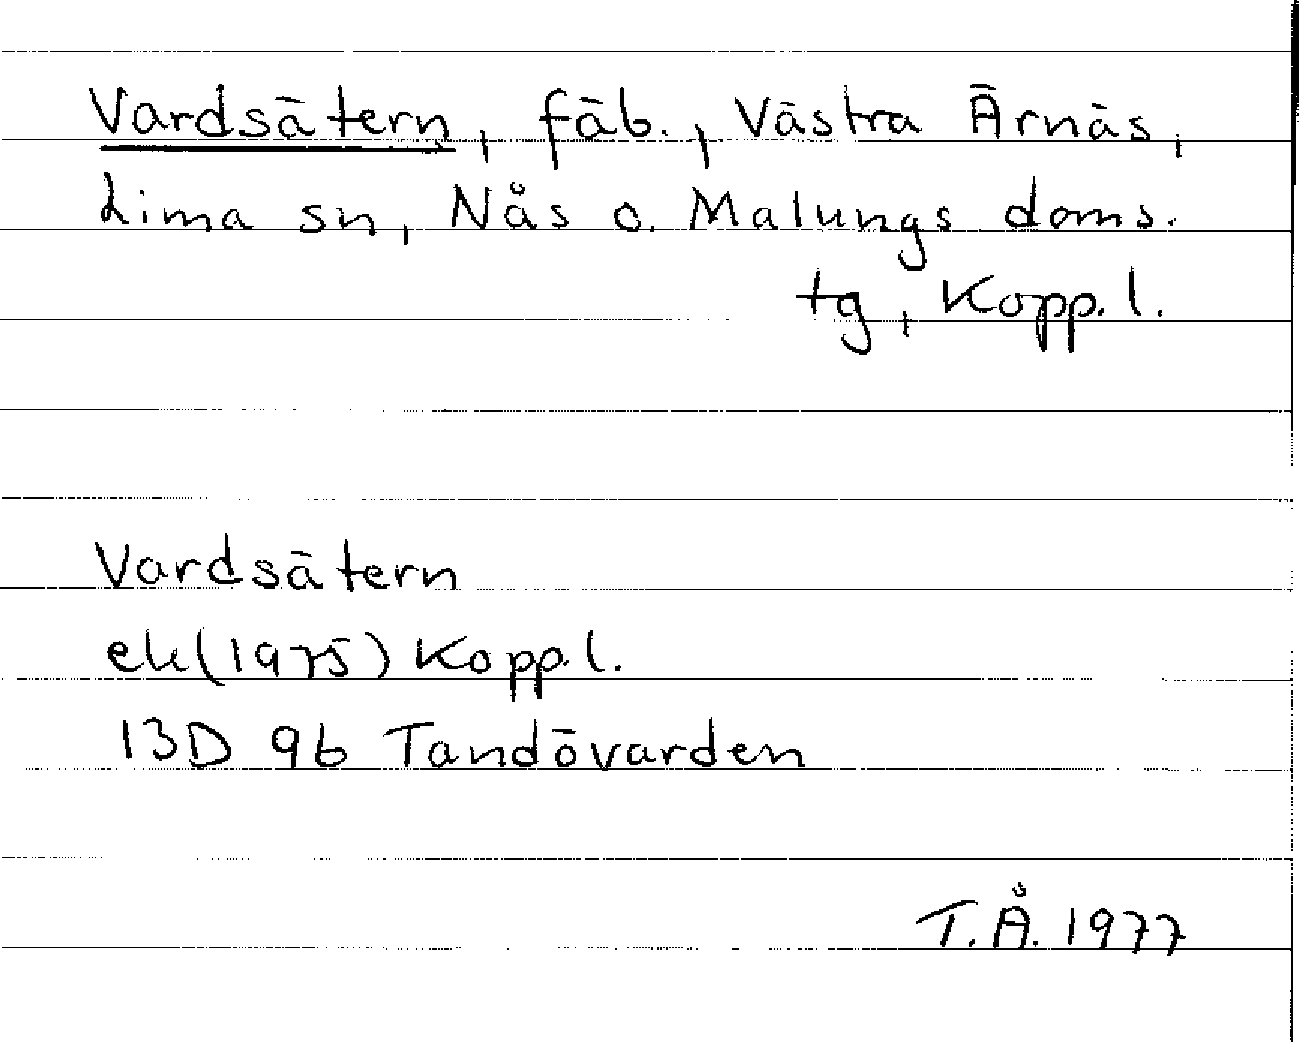 Vardsätern, fäb., Västra Ärnäs,
Lima sn, Nås o. Malungs doms.
tg, Kopp. l.
Vardsätern
ek(1975) Kopp. l.
13D 9b Tandövarden
T.Å. 1977